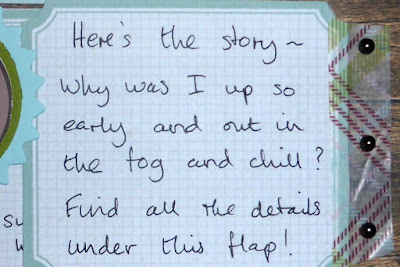 Here's the story ~
Why was I up so
early and out in
the fog and chill?
Find all the details
under this flap!